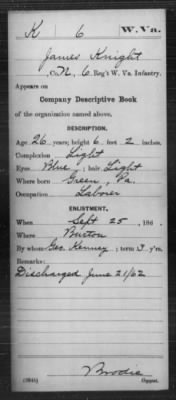 K 6 W.Va.
James Knight
, Co. N, 6 Reg't W. Va. Infantry.
Appears on
Company Descriptive Book
of the organization named above.
DESCRIPTION.
Age 26 years; height 6 feet 2 inches.
Complexion Light
Eyes Blue; hair Light
Where born Green, Pa.
Occupation Laborer
ENLISTMENT.
When Sept 25, 186 .
Where Burton
By whom Geo. Kenney; term 3 y'rs.
Remarks:
Discharged June 21/62
Brodie
Copyist.